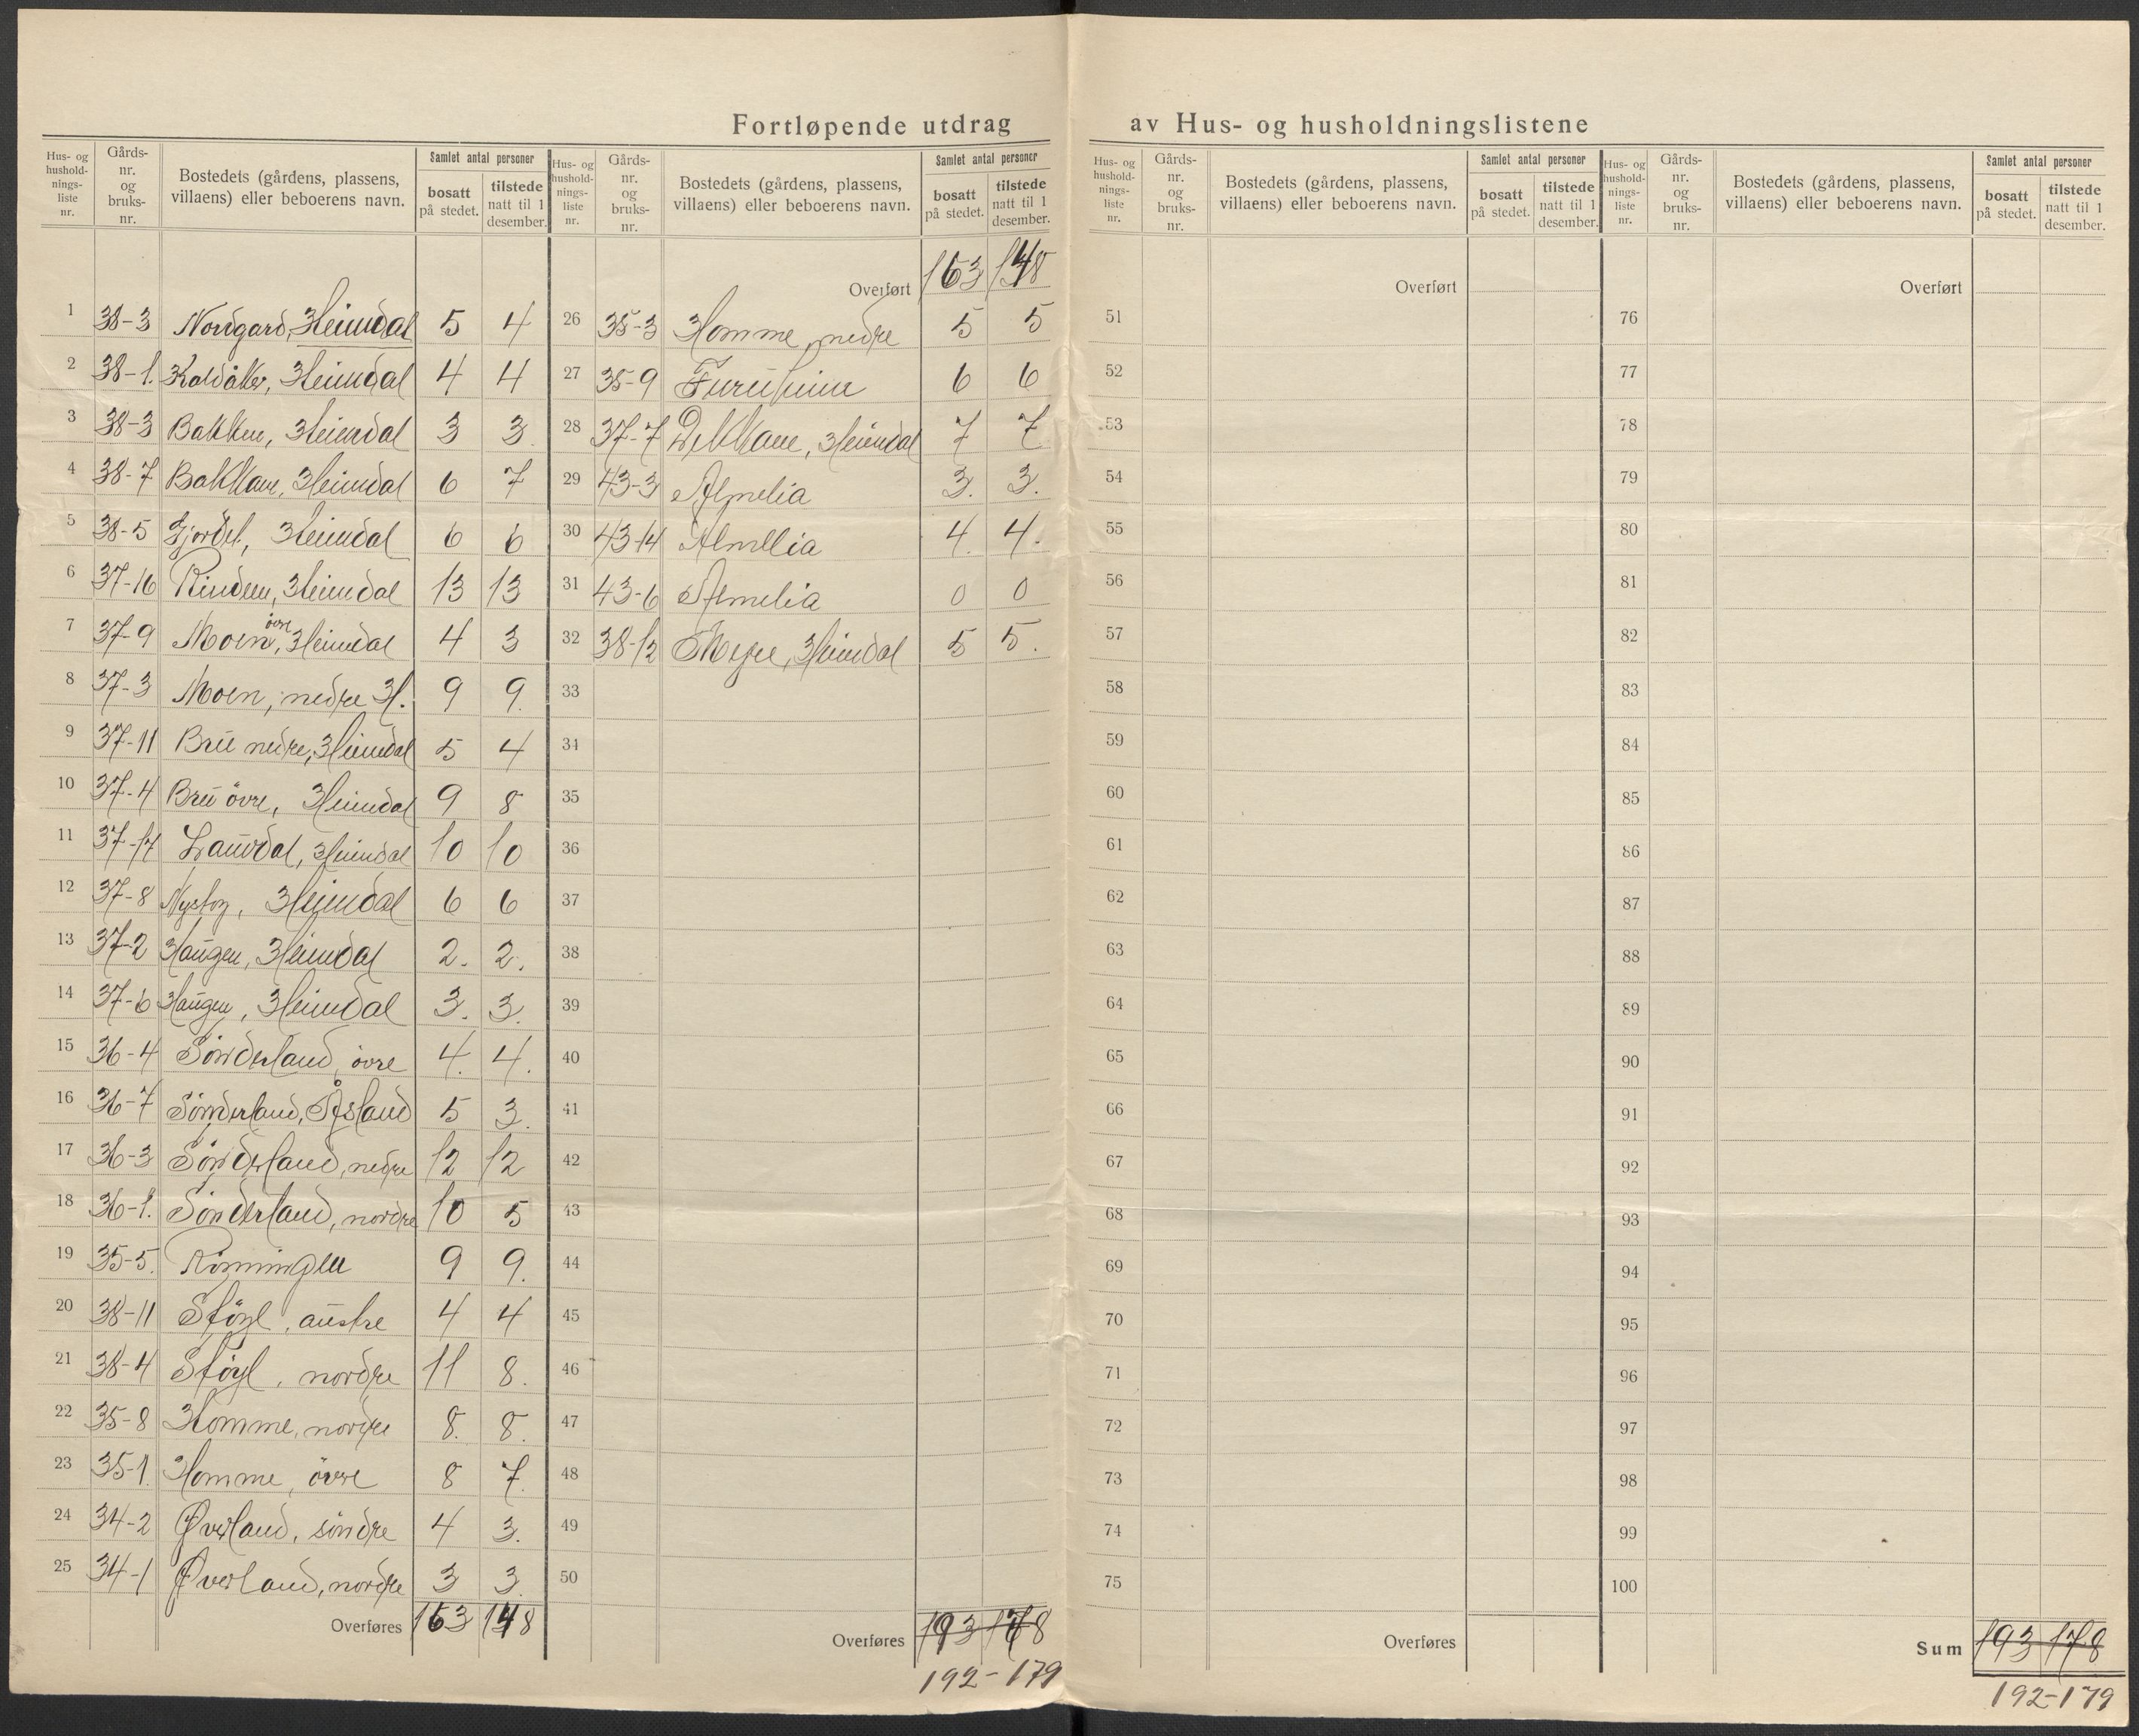 Fortløpende utdrag av Hus- og husholdningslistene
Hus- og hushold-nings-liste nr.
Gårds-nr. og bruks-nr.
Bostedets (gårdens, plassens, villaens) eller beboerens navn.
Samlet antal personer
bosatt på stedet.
tilstede natt til 1 desember.
1 38-3 Nordgard, Heimdal 5 4
2 38-1. Kaldåker, Heimdal 4 4
3 38-3 Bakken, Heimdal 3 3.
4 38-7 Bakkane, Heimdal 6 7
5 38-5 Gjordet, Heimdal 6 6
6 37-16 Rinden, Heimdal 13 13
7 37-9 Moen, övre Heimdal 4 3
8 37-3 Moen, nedre H. 9 9.
9 37-11 Bru nedre, Heimdal 5 4
10 37-4 Bru övre, Heimdal 9 8
11 37-17 Laurdal, Heimdal 10 10
12 37-8 Nystog, Heimdal 6 6
13 37-2 Haugen, Heimdal 2. 2.
14 37-6 Haugen, Heimdal 3. 3.
15 36-4 Sönderland, övre 4. 4.
16 36-7 Sönderland, Åsland 5 3.
17 36-3 Sönderland, nedre 12 12
18 36-1. Sönderland, nordre 10 5
19 35-5. Rönningen 9 9.
20 38-11 Stöyl, austre 4 4
21 38-4 Stöyl, nordre 11 8.
22 35-8 Homme, nordre 8. 8.
23 35-1. Homme, övre 8 7.
24 34-2 Øverland, söndre 4 3.
25 34-1 Øverland, nordre 3 3.
Overføres 163 148
Hus- og hushold-nings-liste nr.
Gårds-nr. og bruks-nr.
Bostedets (gårdens, plassens, villaens) eller beboerens navn.
Samlet antal personer
bosatt på stedet.
tilstede natt til 1 desember.
Overført 163 148
26 35-3 Homme, nedre 5 5
27 35-9 Furuheim 6 6
28 37-7 Dekkane, Heimdal 7 7
29 43-3 Almelia 3. 3.
30 43-14 Almelia 4. 4.
31 43-6 Almelia 0 0
32 38-12 Heimdal 5 5.
33
34
35
36
37
38
39
40
41
42
43
44
45
46
47
48
49
50
Overføres 193 178
192-179
Hus- og hushold-nings-liste nr.
Gårds-nr. og bruks-nr.
Bostedets (gårdens, plassens, villaens) eller beboerens navn.
Samlet antal personer
bosatt på stedet.
tilstede natt til 1 desember.
Overført
51
52
53
54
55
56
57
58
59
60
61
62
63
64
65
66
67
68
69
70
71
72
73
74
75
Overføres
Hus- og hushold-nings-liste nr.
Gårds-nr. og bruks-nr.
Bostedets (gårdens, plassens, villaens) eller beboerens navn.
Samlet antal personer
bosatt på stedet.
tilstede natt til 1 desember.
Overført
76
77
78
79
80
81
82
83
84
85
86
87
88
89
90
91
92
93
94
95
96
97
98
99
100
Sum 193 178
192-179